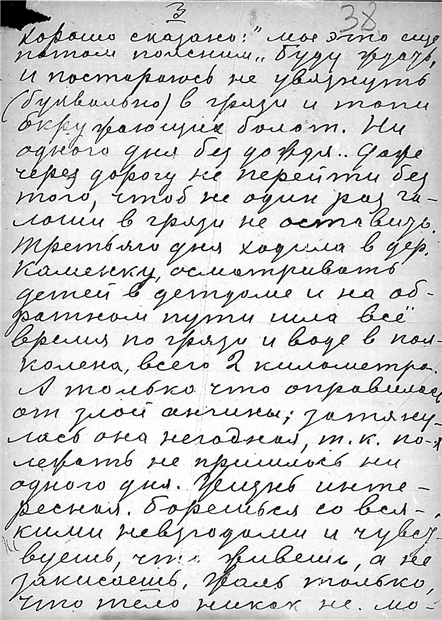 3
38
хорошо сказано: "мое это еще
потом поясним". Буду ждать,
и постараюсь не увязнуть
(буквально) в грязи и топи
окружающих болот. Ни
одного дня без дождя.. Даже
через дорогу не перейти без
того, чтоб не один раз га-
лоши в грязи не оставишь.
Третьяго дня ходила в дер.
Каменку, осматривать
детей в детдоме и на об-
ратном пути шла всё
время по грязи и воде в пол-
колена, всего 2 километра.
А только что оправилась
от злой ангины; затяну-
лась она негодная, т.к. по-
лежать не пришлось ни
одного дня. Жизнь инте-
ресная. Борешься со вся-
кими невзгодами и чувст-
вуешь, что живешь, а не
закисаешь. Жаль только,
что тело никак не мо-